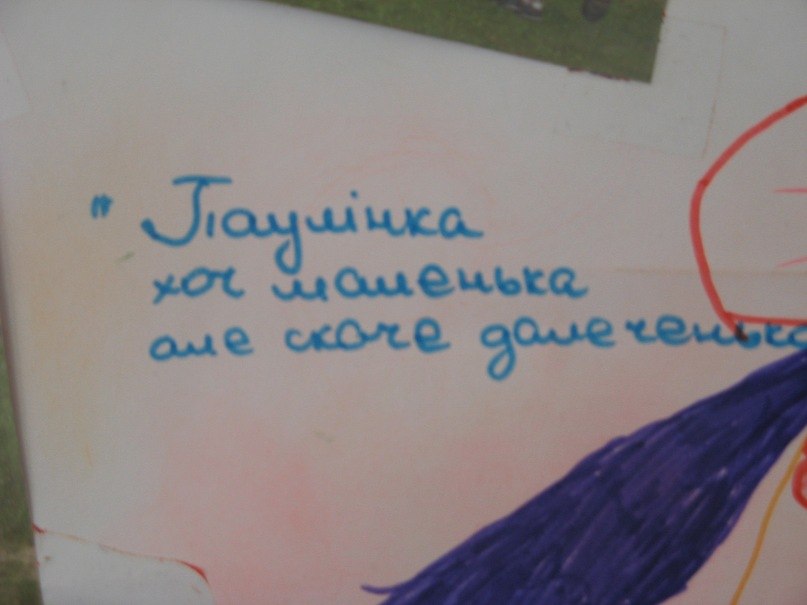 " Паулінка
хоч маленька
але скаче далеченько